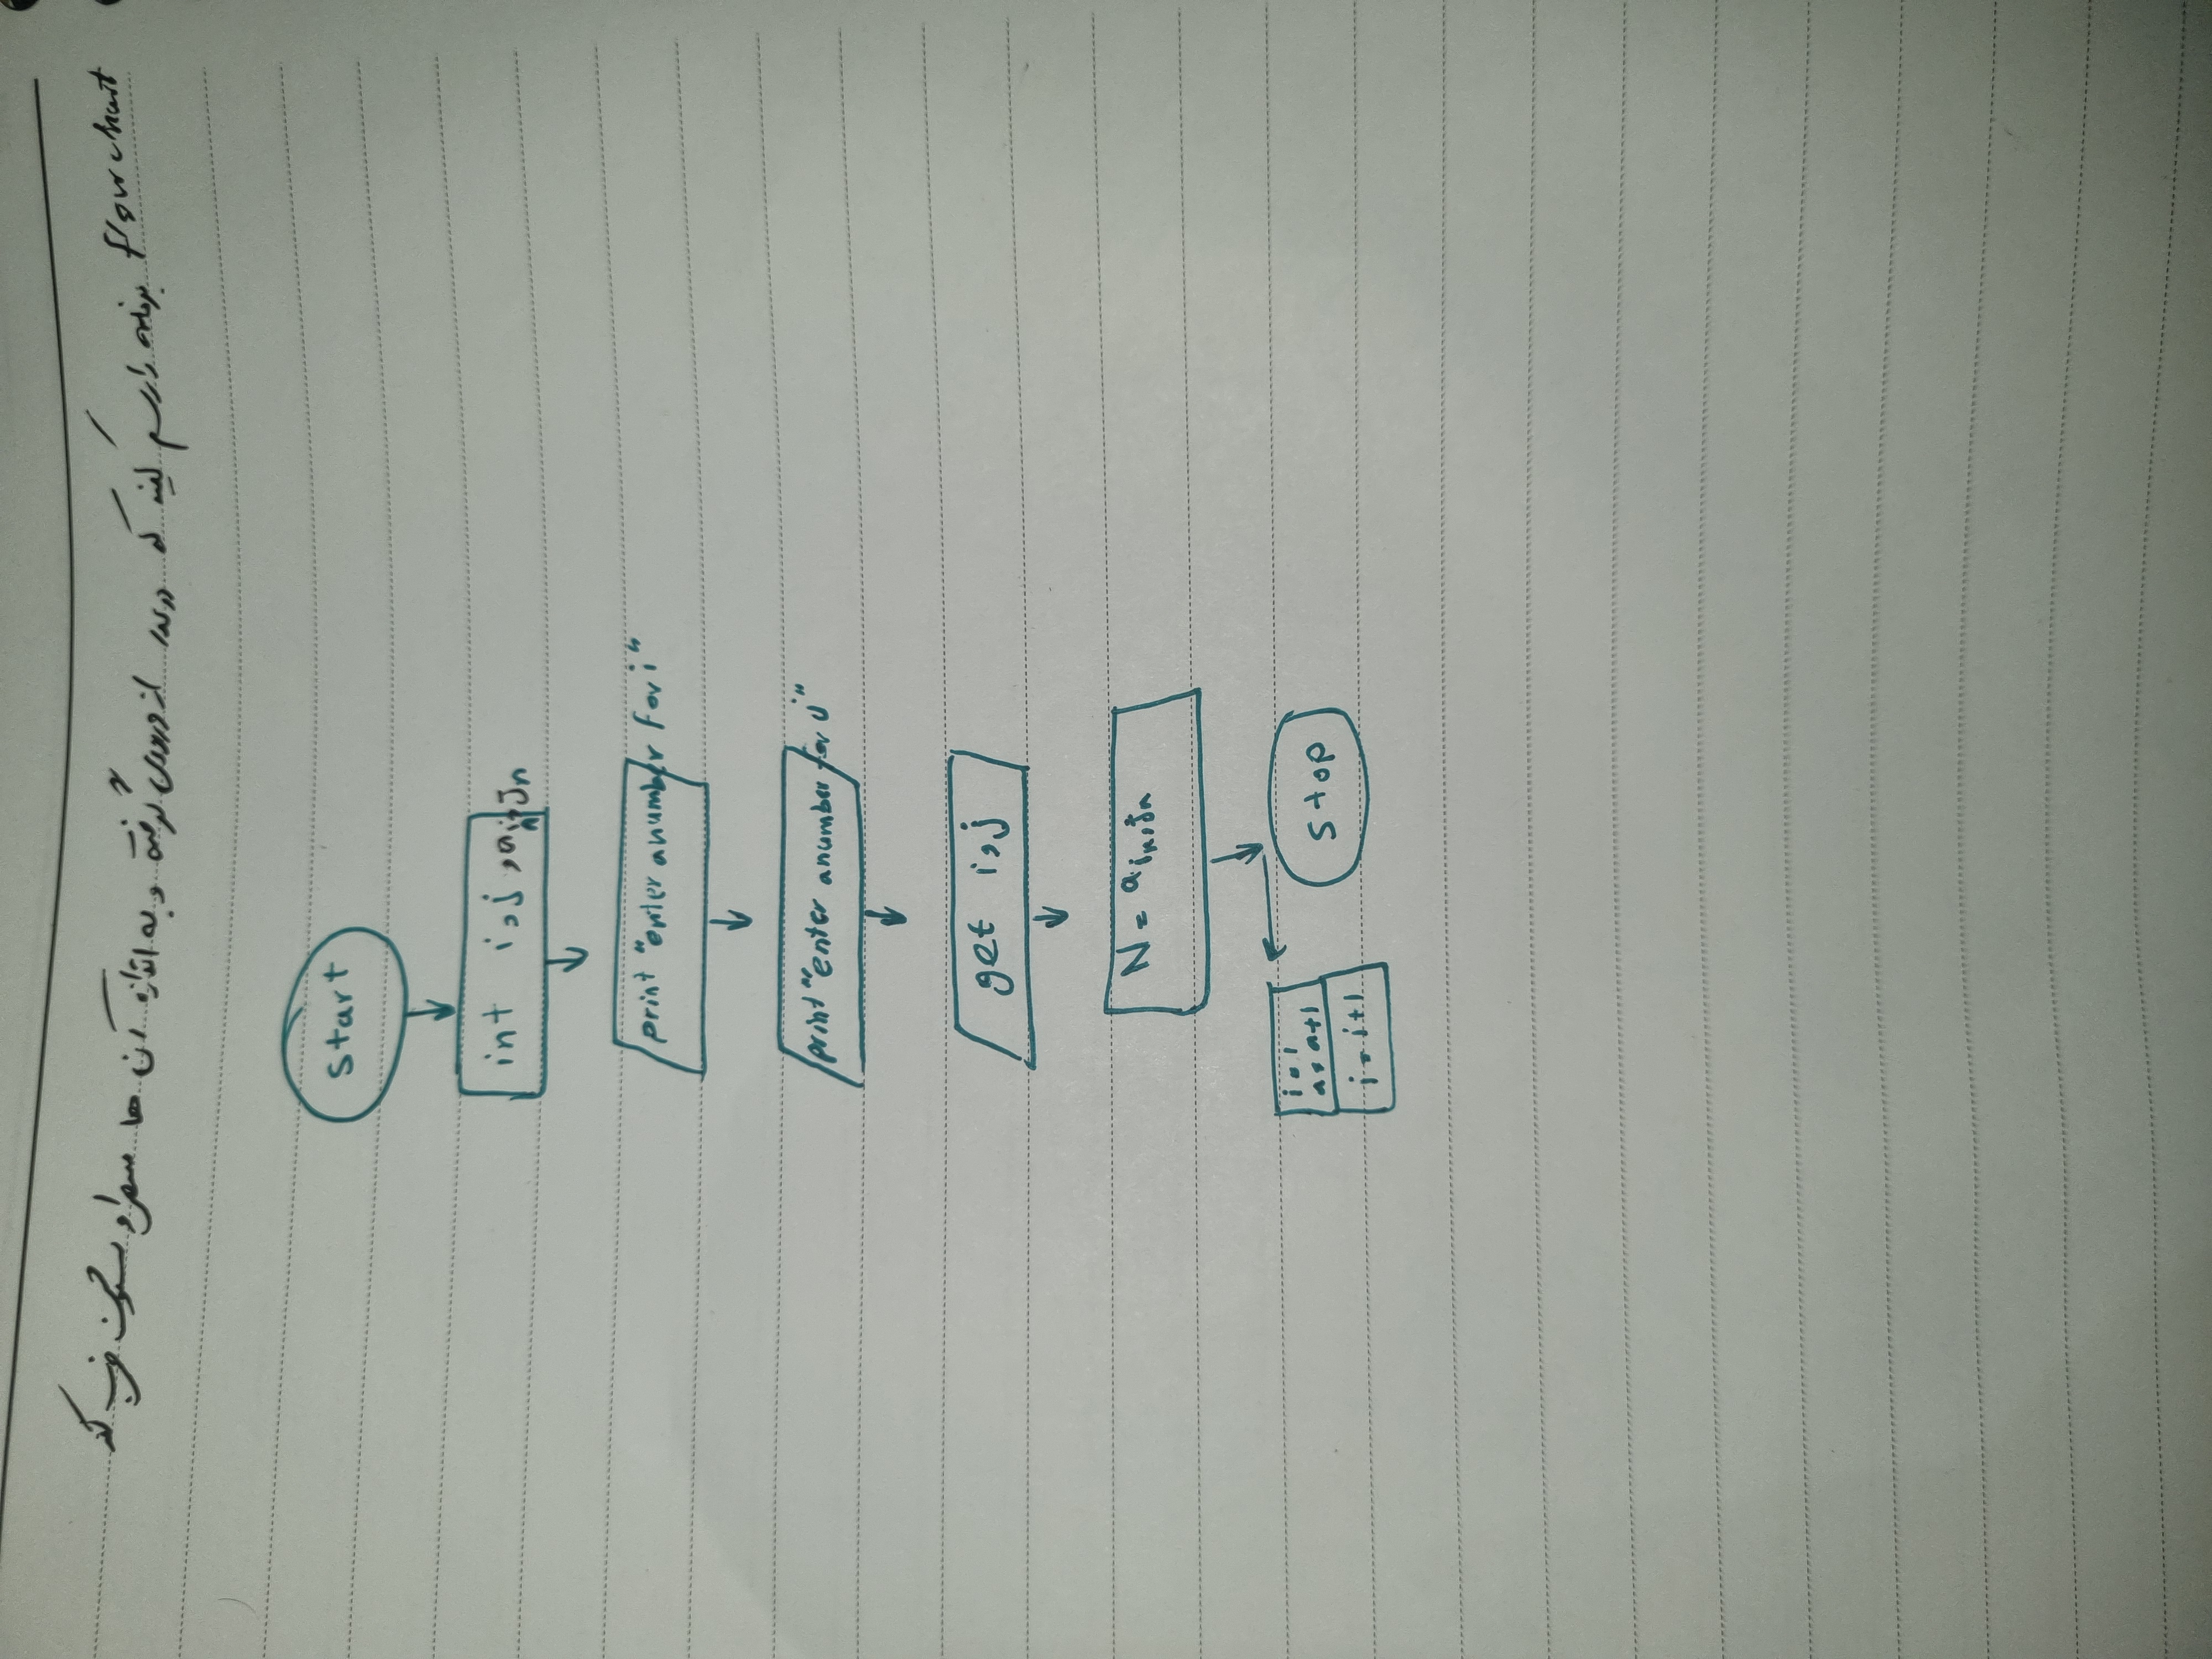 flowchart برنامه را رسم کنید که دو عدد از ورودی گرفته و به اندازه آن ها سطر و ستون ضرب کند
start
int i,j,a in,Jn
print "enter a number for i"
print "enter a number for j"
get i,j
N = a in,jn
i = 1
a = a+1
j = i+1
stop